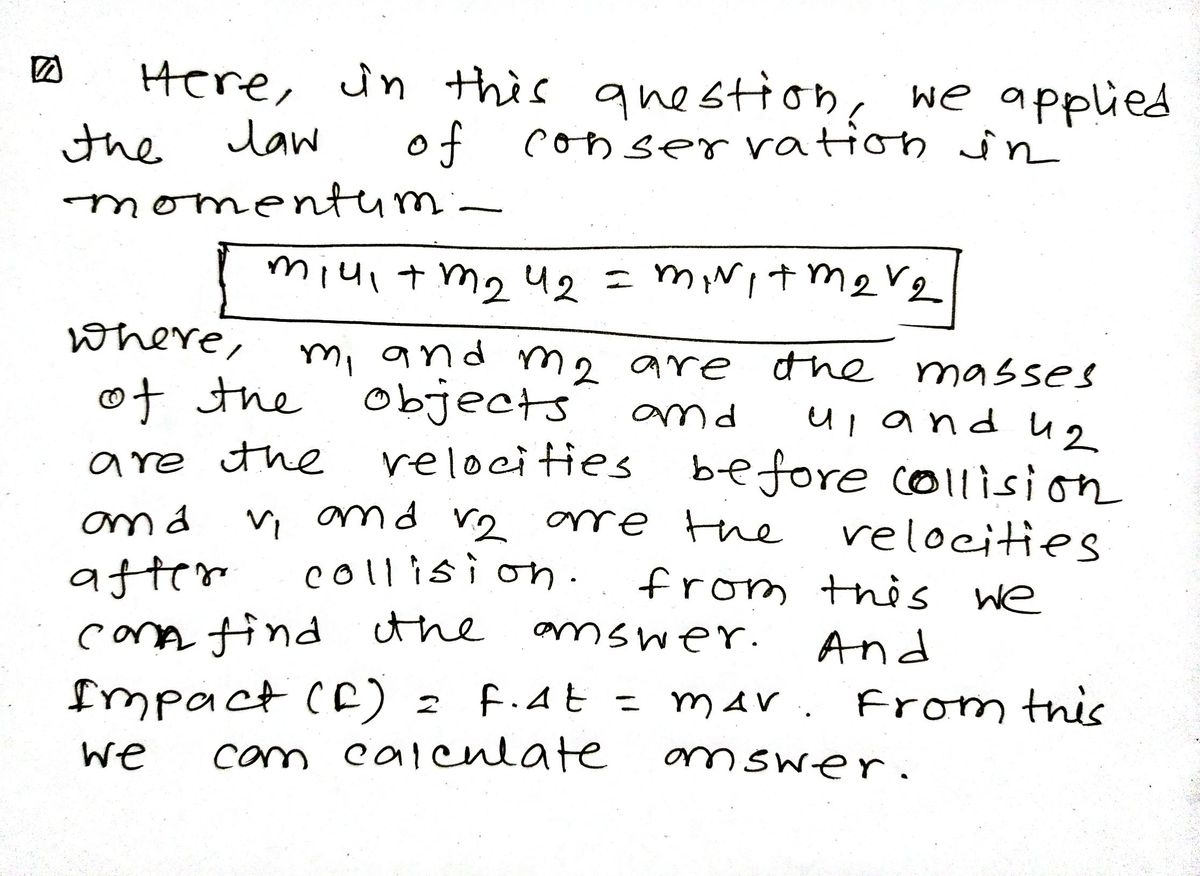 Here, in this question, we applied
the law of conservation in
momentum -
m₁u₁ + m₂u₂ = m₁v₁ + m₂v₂
where, m₁ and m₂ are the masses
of the objects and u₁ and u₂
are the velocities before collision
and v₁ and v₂ are the velocities
after collision. from this we
can find the answer. And
Impact (I) = F.Δt = mΔv. From this
we can calculate answer.